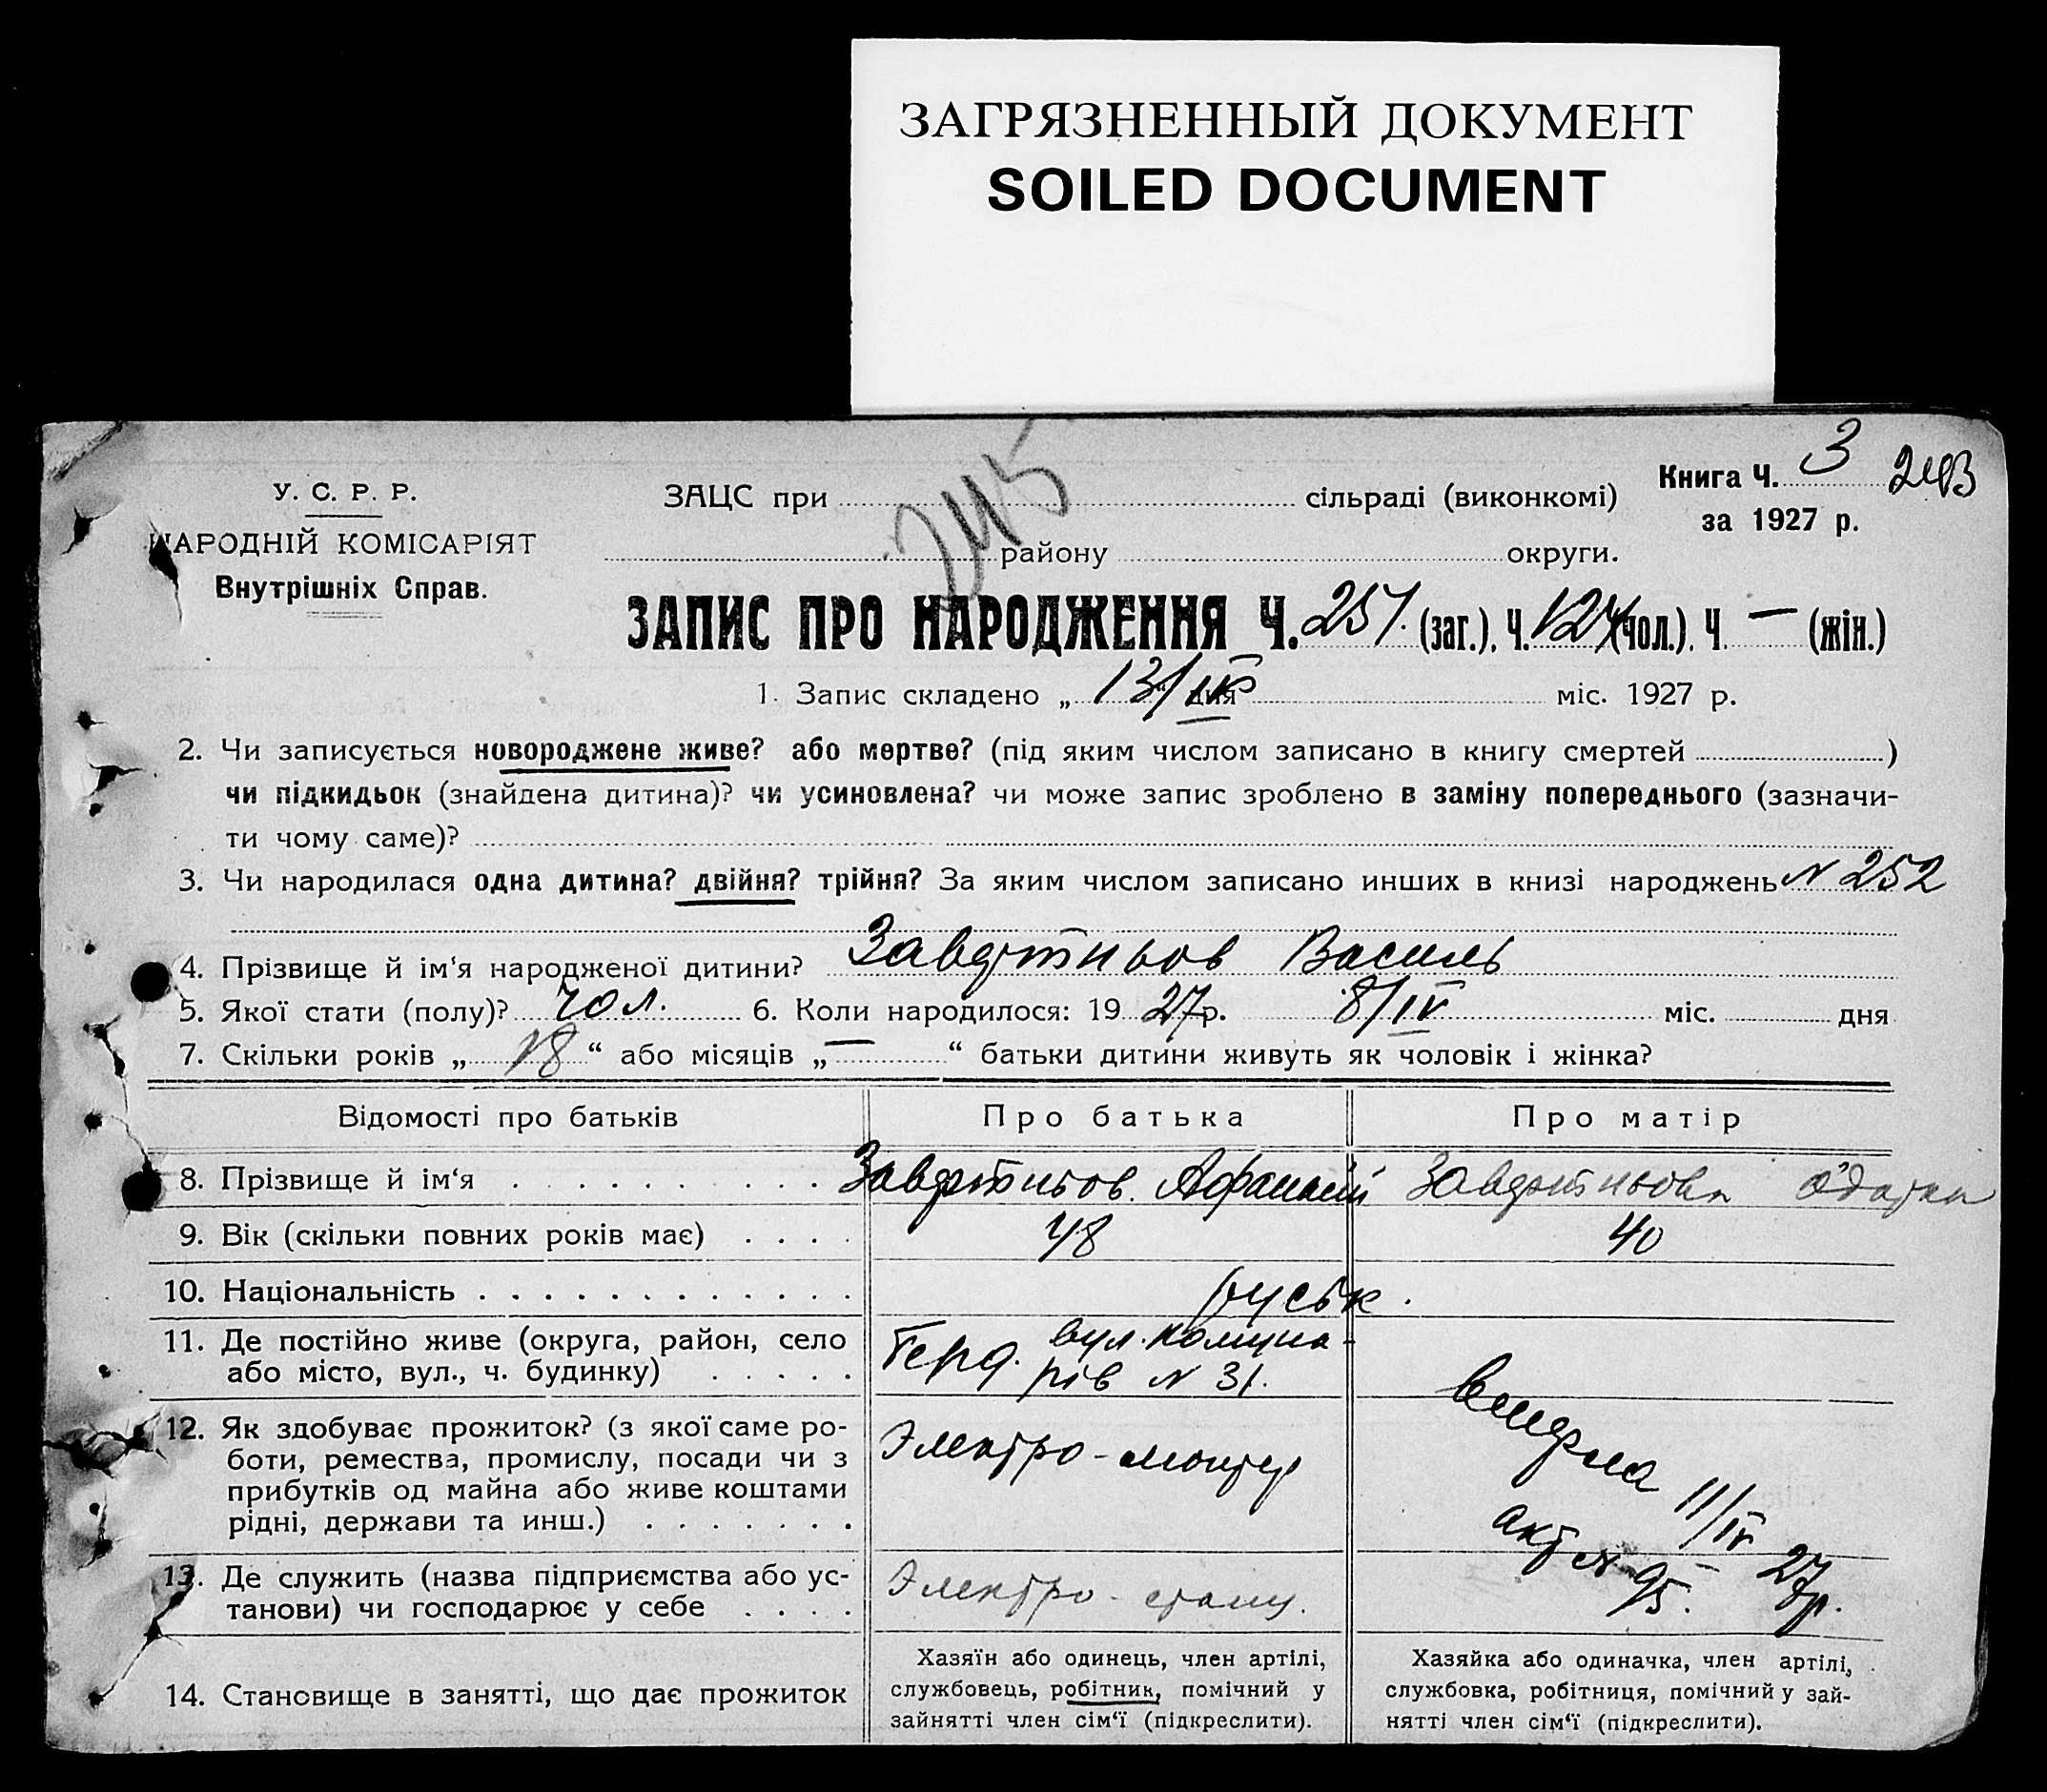 ЗАГРЯЗНЕННЫЙ ДОКУМЕНТ
SOILED DOCUMENT
Книга Ч. 3 243
за 1927 р.
245
У. С. Р. Р.
НАРОДНІЙ КОМІСАРІЯТ
Внутрішніх Справ.
ЗАЦС при сільраді (виконкомі)
району округи.
ЗАПИС ПРО НАРОДЖЕННЯ Ч. 251. (заг.), Ч. 124 (чол.), Ч. — (жін.)
1. Запис складено „ 13/IV “ дня міс. 1927 р.
2. Чи записується новороджене живе? або мертве? (під яким числом записано в книгу смертей )
чи підкидьок (знайдена дитина)? чи усиновлена? чи може запис зроблено в заміну попереднього (зазначи-
ти чому саме)?
3. Чи народилася одна дитина? двійня? трійня? За яким числом записано инших в книзі народжень N 252
4. Прізвище й ім‘я народженої дитини? Василь
5. Якої стати (полу)? чол. 6. Коли народилося: 19 27 р. 8/IV міс. дня
7. Скільки років „ 18 “ або місяців „ — “ батьки дитини живуть як чоловік і жінка?
Відомості про батьків Про батька Про матір
8. Прізвище й ім‘я Афанасій
9. Вік (скільки повних років має) 48 40
10. Національність руськ.
11. Де постійно живе (округа, район, село
або місто, вул., ч. будинку)
Берд. вул. Комуна-
рів N 31.
12. Як здобуває прожиток? (з якої саме ро-
боти, ремества, промислу, посади чи з
прибутків од майна або живе коштами
рідні, держави та инш.)
Электро-монтер
вмерла 11/IV 27р.
акт N 95.
13. Де служить (назва підприємства або ус-
танови) чи господарює у себе
Электро-станц.
14. Становище в занятті, що дає прожиток
Хазяїн або одинець, член артілі,
службовець, робітник, помічний у
зайнятті член сім‘ї (підкреслити).
Хазяйка або одиначка, член артілі,
службовка, робітниця, помічний у зай-
нятті член сім‘ї (підкреслити).